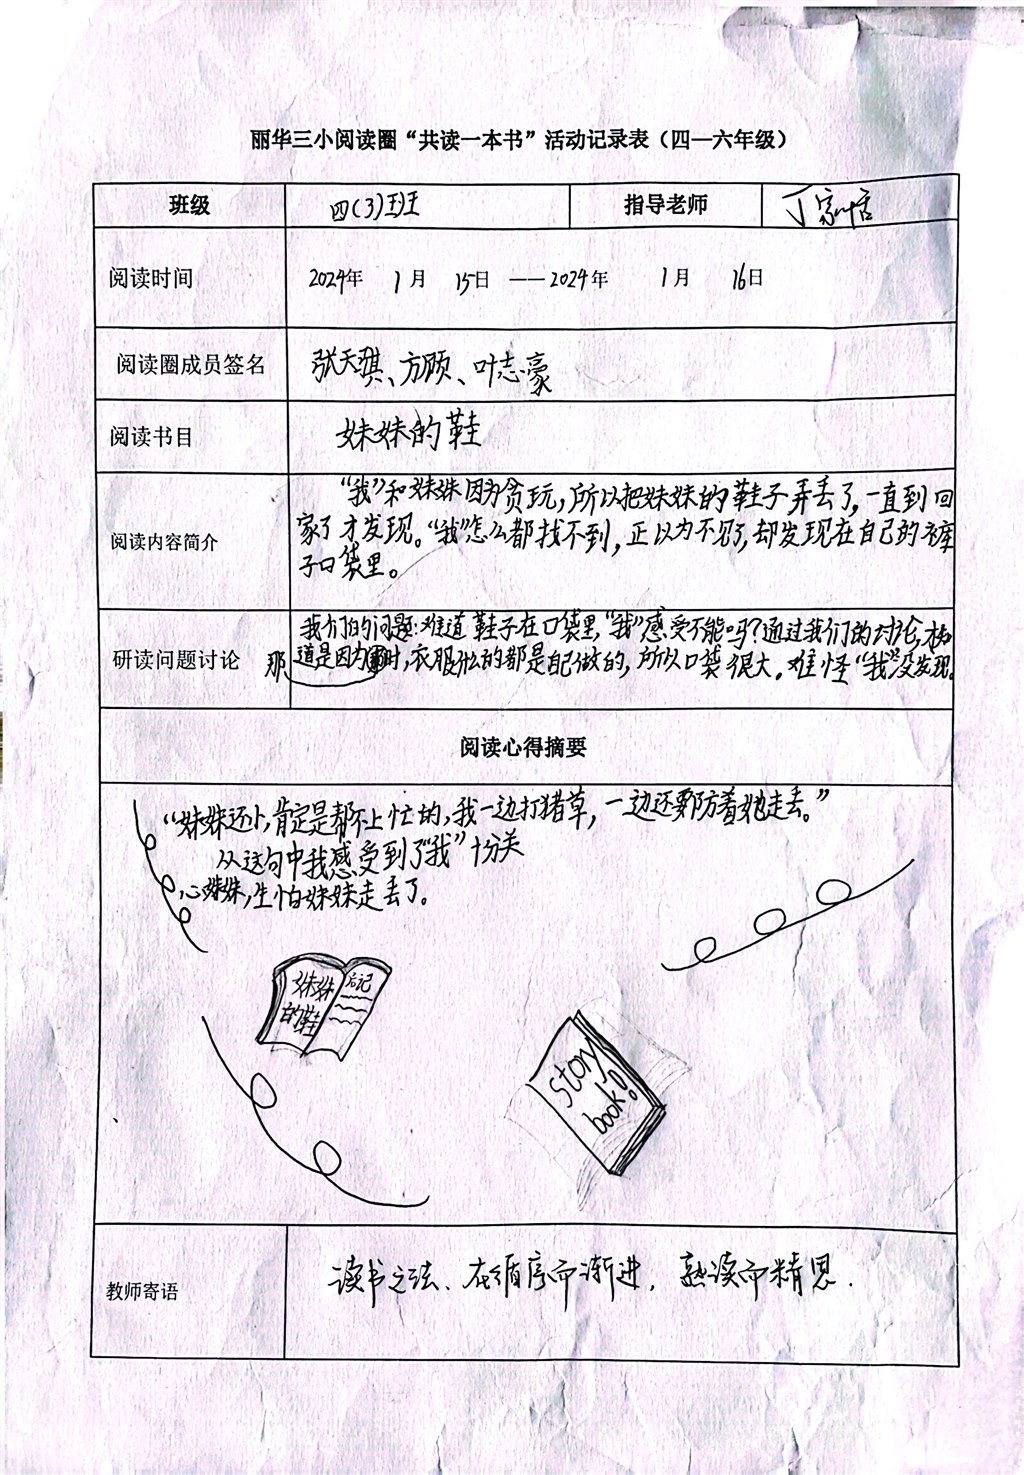 丽华三小阅读圈“共读一本书”活动记录表（四—六年级）
班级 四(3)班 指导老师 丁家恬
阅读时间 2024年 1月 15日 ——2024年 1月 16日
阅读圈成员签名 张天骐、方顾、叶志豪
阅读书目 妹妹的鞋
阅读内容简介
“我”和妹妹因为贪玩，所以把妹妹的鞋子弄丢了，一直到回
家了才发现。“我”怎么都找不到，正以为不见了，却发现在自己的裤
子口袋里。
研读问题讨论
我们的问题：难道鞋子在口袋里，“我”感受不能吗？通过我们的讨论，知
道是因为那时，衣服什么的都是自己做的，所以口袋很大。难怪“我”没发现。
阅读心得摘要
“妹妹还小，肯定是帮不上忙的，我一边打猪草，一边还要防着她走丢。”
从这句中我感受到了“我”十分关
心妹妹，生怕妹妹走丢了。
妹妹
的鞋
后记
story
book!
教师寄语 读书之法、在循序而渐进，熟读而精思．